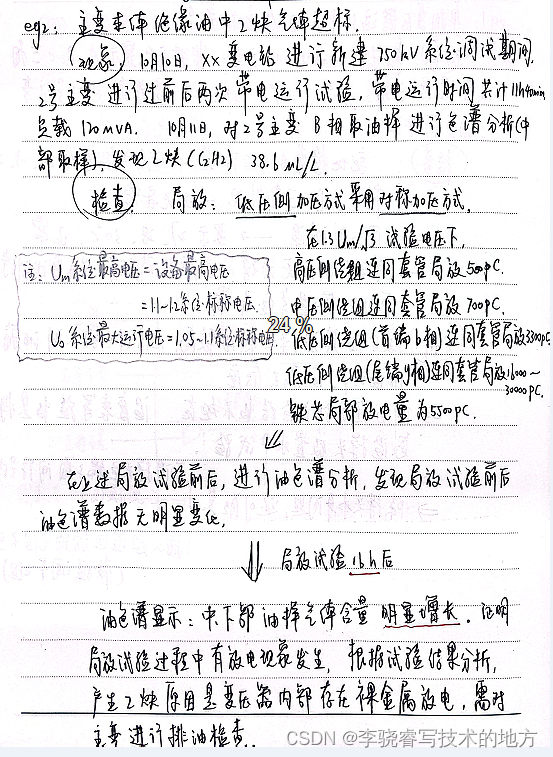 eg2: 主变本体绝缘油中乙炔气体超标.
现象: 10月10日, XX变电站 进行新建750kV系统调试期间,
2号主变 进行过前后两次带电运行试验, 带电运行时间共计11h40min
负载120MVA. 10月11日, 对2号主变B相取油样进行色谱分析(中
部取样), 发现乙炔(C2H2) 38.6 mL/L.
检查. 局放: 低压侧加压方式采用对称加压方式,
在1.3Um/√3 试验电压下,
高压侧绕组连同套管局放500PC.
中压侧绕组连同套管局放700PC.
低压侧绕组(首端b相)连同套管局放3300PC
低压侧绕组(尾端y相)连同套管局放16000~
30000PC.
铁芯局部放电量为5500PC.
注: Um系统最高电压=设备最高电压
=1.1~1.2系统标称电压
U0系统最大运行电压=1.05~1.1系统标称电压
24%
在上述局放试验前后, 进行油色谱分析, 发现局放试验前后
油色谱数据无明显变化.
局放试验16h后
油色谱显示: 中、下部油样气体含量明显增长. 证明
局放试验过程中有放电现象发生, 根据试验结果分析,
产生乙炔原因是变压器内部存在裸金属放电, 需对
主变进行排油检查.
CSDN @李骁睿写技术的地方